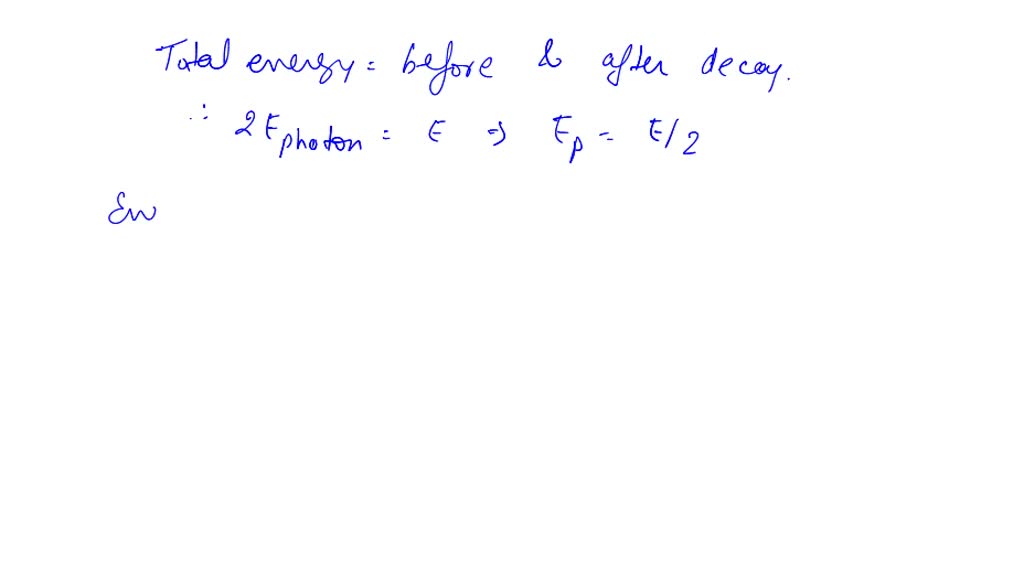 Total energy = before & after decay.
∴ 2 E photon = E ⇒ E p = E/2
En